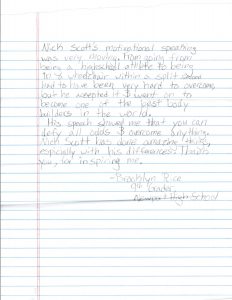 Nick Scott's motivational speaking
was very moving. From going from
being a highschool athlete to being
in a wheelchair within a split second
had to have been very hard to overcome,
but he accepted it & went on to
become one of the best body
builders in the world.
His speach showed me that you can
defy all odds & overcome anything.
Nick Scott has done amazing things,
espically with his differences! Thank
you, for inspiring me.
-Brooklyn Rice
9th Grader,
Newport High School